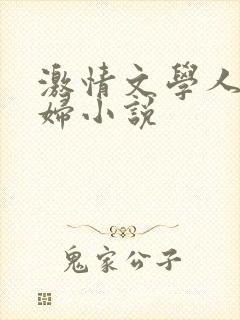 激情文學人
婦小說
鬼家公子